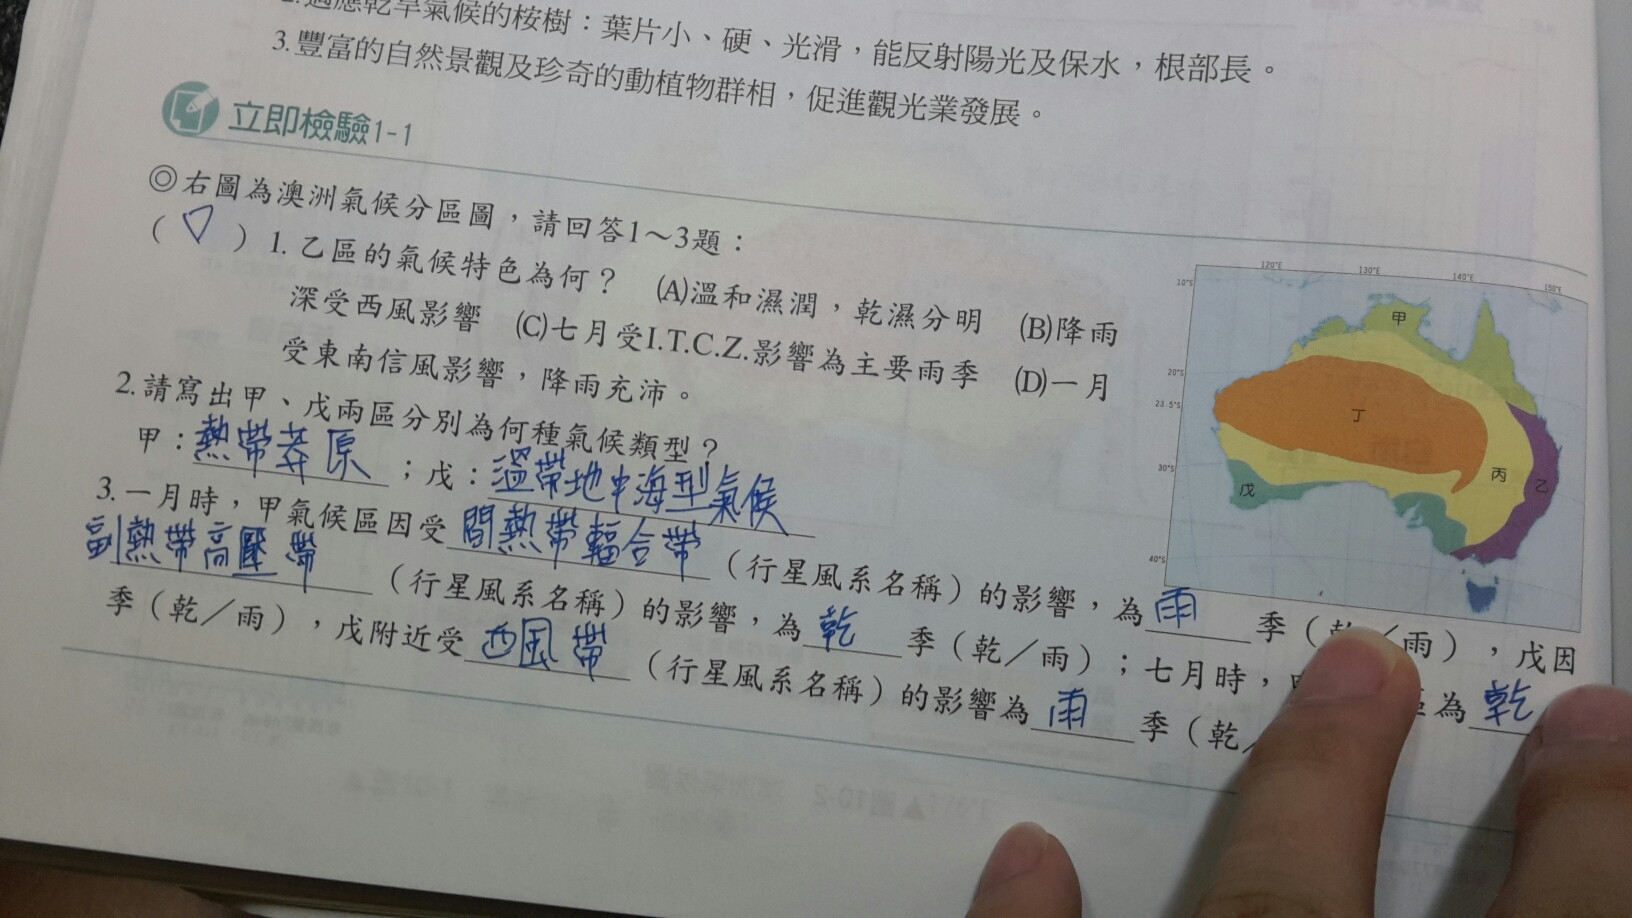 2.適應乾旱氣候的桉樹：葉片小、硬、光滑，能反射陽光及保水，根部長。
3.豐富的自然景觀及珍奇的動植物群相，促進觀光業發展。
立即檢驗1-1
◎右圖為澳洲氣候分區圖，請回答1～3題：
（ D ）1.乙區的氣候特色為何？ (A)溫和濕潤，乾濕分明 (B)降雨
深受西風影響 (C)七月受I.T.C.Z.影響為主要雨季 (D)一月
受東南信風影響，降雨充沛。
2.請寫出甲、戊兩區分別為何種氣候類型？
甲：熱帶莽原；戊：溫帶地中海型氣候
3.一月時，甲氣候區因受間熱帶輻合帶（行星風系名稱）的影響，為雨季（乾／雨），戊因
副熱帶高壓帶（行星風系名稱）的影響，為乾季（乾／雨）；七月時，為乾
季（乾／雨），戊附近受西風帶（行星風系名稱）的影響為雨季（乾
120°E
130°E
140°E
150°E
10°S
20°S
23.5°S
30°S
40°S
甲
丁
丙
乙
戊